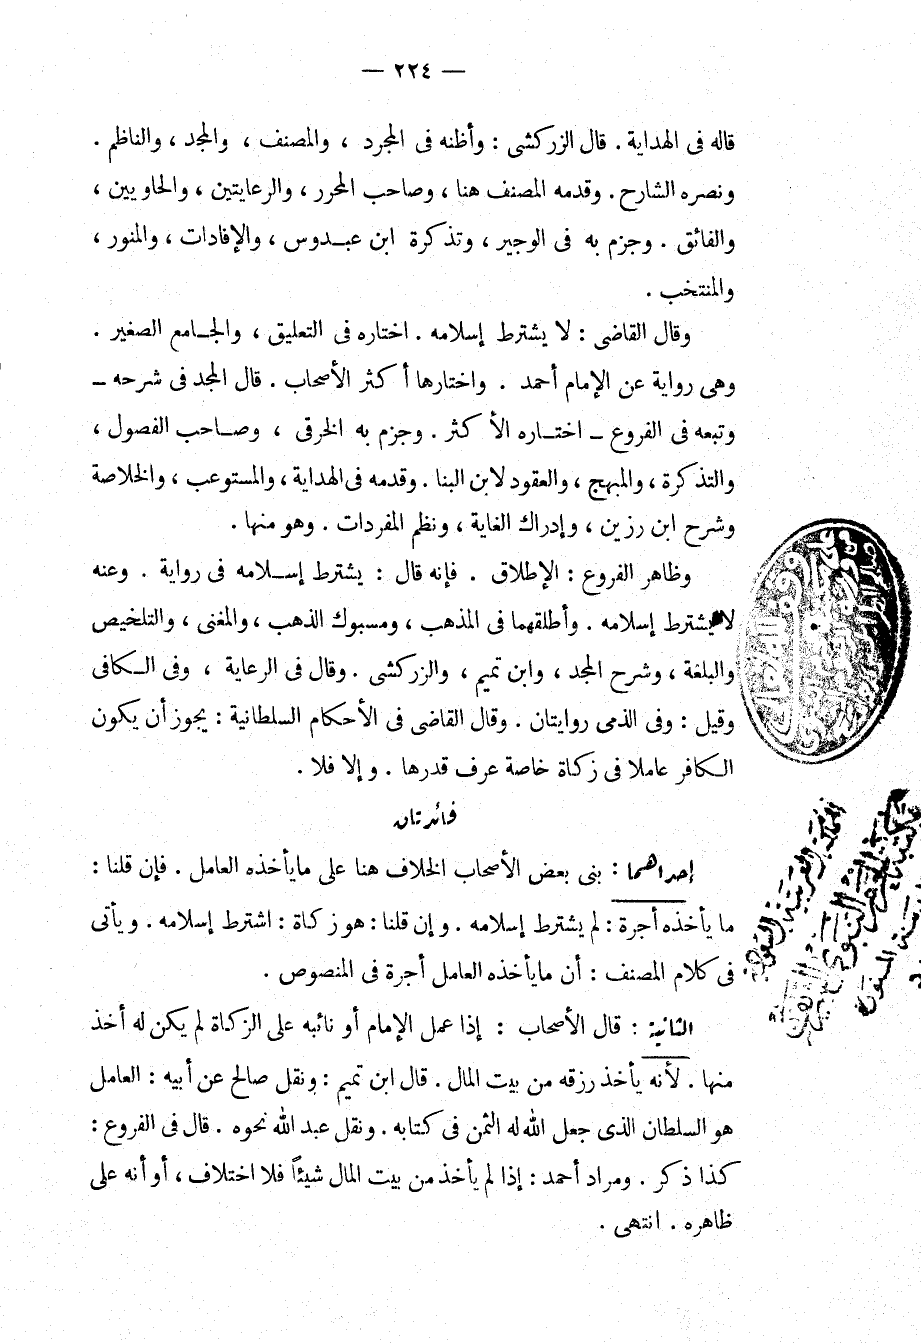 — ٢٢٤ —
قاله فى الهداية . قال الزركشى : وأظنه فى المجرد ، والمصنف ، والمجد ، والناظم .
ونصره الشارح . وقدمه المصنف هنا ، وصاحب المحرر ، والرعايتين ، والحاويين ،
والفائق . وجزم به فى الوجيز ، وتذكرة ابن عبدوس ، والإفادات ، والمنور ،
والمنتخب .
وقال القاضى : لا يشترط إسلامه . اختاره فى التعليق ، والجامع الصغير .
وهى رواية عن الإمام أحمد . واختارها أكثر الأصحاب . قال المجد فى شرحه –
وتبعه فى الفروع – اختاره الأكثر . وجزم به الخرقى ، وصاحب الفصول ،
والتذكرة ، والمبهج ، والعقود لابن البنا . وقدمه فى الهداية ، والمستوعب ، والخلاصة
وشرح ابن رزين ، وإدراك الغاية ، ونظم المفردات . وهو منها .
وظاهر الفروع : الإطلاق . فإنه قال : يشترط إسلامه فى رواية . وعنه
لا يشترط إسلامه . وأطلقهما فى المذهب ، ومسبوك الذهب ، والمغنى ، والتلخيص
والبلغة ، وشرح المجد ، وابن تميم ، والزركشى . وقال فى الرعاية ، وفى الكافى
وقيل : وفى الذمى روايتان . وقال القاضى فى الأحكام السلطانية : يجوز أن يكون
الكافر عاملا فى زكاة خاصة عرف قدرها . وإلا فلا .
فائدتان
إحداهما : بنى بعض الأصحاب الخلاف هنا على ما يأخذه العامل . فإن قلنا :
ما يأخذه أجرة : لم يشترط إسلامه . وإن قلنا : هو زكاة : اشترط إسلامه . ويأتى
فى كلام المصنف : أن ما يأخذه العامل أجرة فى المنصوص .
الثانية : قال الأصحاب : إذا عمل الإمام أو نائبه على الزكاة لم يكن له أخذ
منها . لأنه يأخذ رزقه من بيت المال . قال ابن تميم : ونقل صالح عن أبيه : العامل
هو السلطان الذى جعل الله له الثمن فى كتابه . ونقل عبد الله نحوه . قال فى الفروع :
كذا ذكر . ومراد أحمد : إذا لم يأخذ من بيت المال شيئاً فلا اختلاف ، أو أنه على
ظاهره . انتهى .
وقف لله تعالى